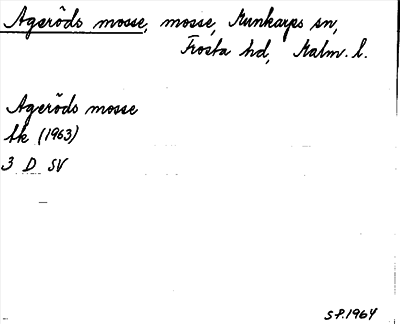 Ageröds mosse, mosse, Munkarps sn,
Frosta hd, Malm. l.
Ageröds mosse
tk (1963)
3 D SV
S.P. 1964